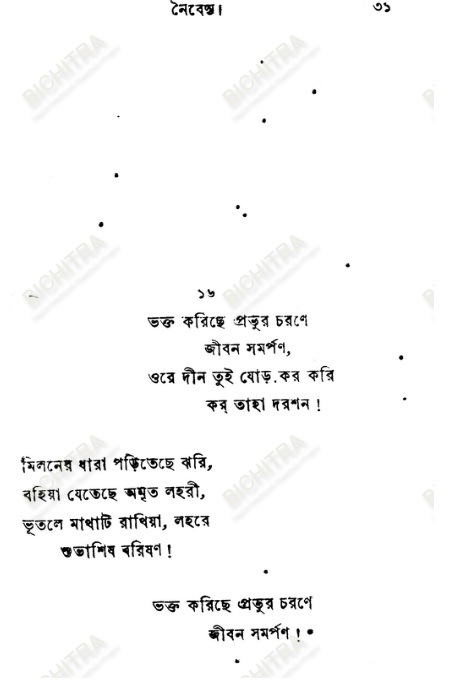 নৈবেদ্য। ৩১
১৬
ভক্ত করিছে প্রভুর চরণে
জীবন সমর্পণ,
ওরে দীন তুই যোড়.কর করি
কর্ তাহা দরশন !
মিলনের ধারা পড়িতেছে ঝরি,
বহিয়া যেতেছে অমৃত লহরী,
ভূতলে মাথাটি রাখিয়া, লহরে
শুভাশিষ বরিষণ !
ভক্ত করিছে প্রভুর চরণে
জীবন সমর্পণ !
BICHITRA
BICHITRA
BICHITRA
BICHITRA
BICHITRA
BICHITRA
BICHITRA
BICHITRA